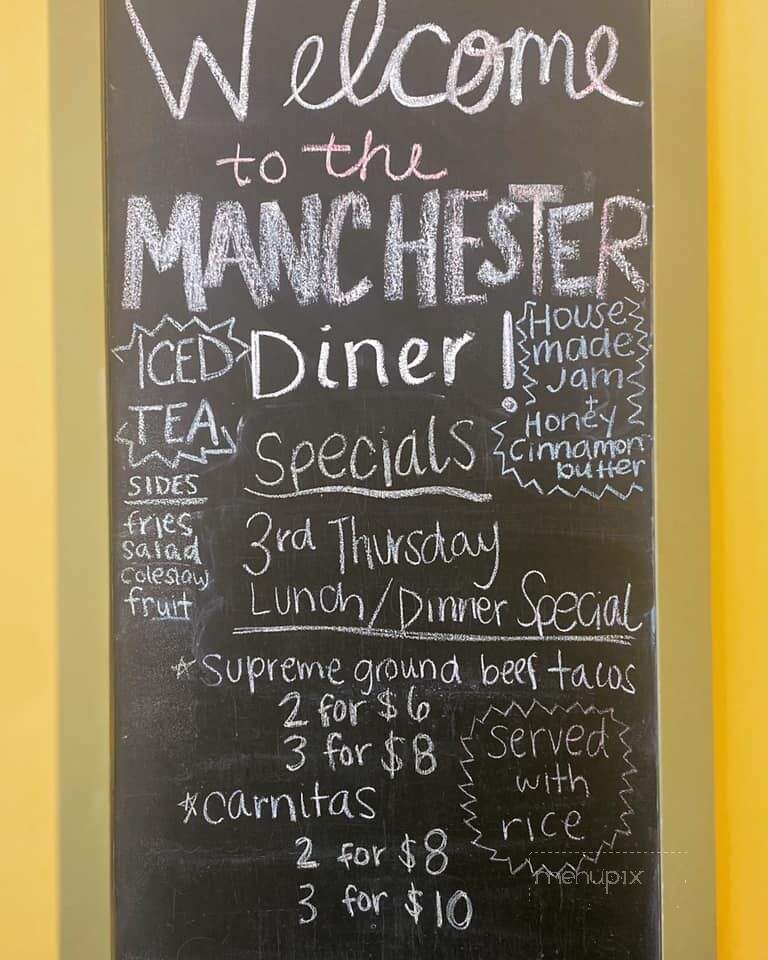 Welcome
to the
MANCHESTER
Diner!
ICED
TEA
House
made
Jam
+
Honey
Cinnamon
butter
SIDES
fries
salad
coleslaw
fruit
Specials
3rd Thursday
Lunch/Dinner Special
☆Supreme ground beef tacos
2 for $6
3 for $8
served
with
rice
☆carnitas
2 for $8
3 for $10
menupix